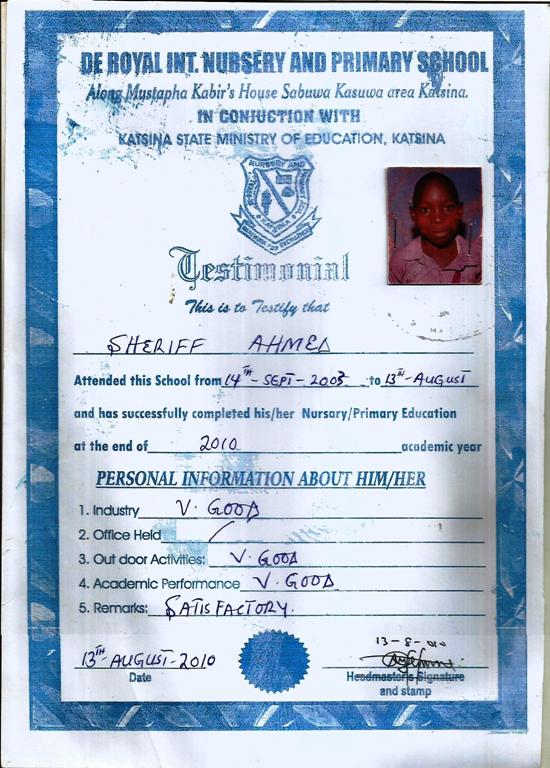 DE ROYAL INT. NURSERY AND PRIMARY SCHOOL
Along Mustapha Kabir's House Sabuwa Kasuwa area Katsina.
IN CONJUCTION WITH
KATSINA STATE MINISTRY OF EDUCATION, KATSINA
NURSERY AND
KATSINA
Testimonial
This is to Testify that
SHERIFF AHMED
Attended this School from 14TH - SEPT - 2003 to 13TH - AUGUST
and has successfully completed his/her Nursary/Primary Education
at the end of 2010 academic year
PERSONAL INFORMATION ABOUT HIM/HER
1. Industry V. GOOD
2. Office Held /
3. Out door Activities: V. GOOD
4. Academic Performance V. GOOD
5. Remarks: SATISFACTORY.
13-8-010
13TH - AUGUST - 2010
Date
Headmaster's Signature
and stamp